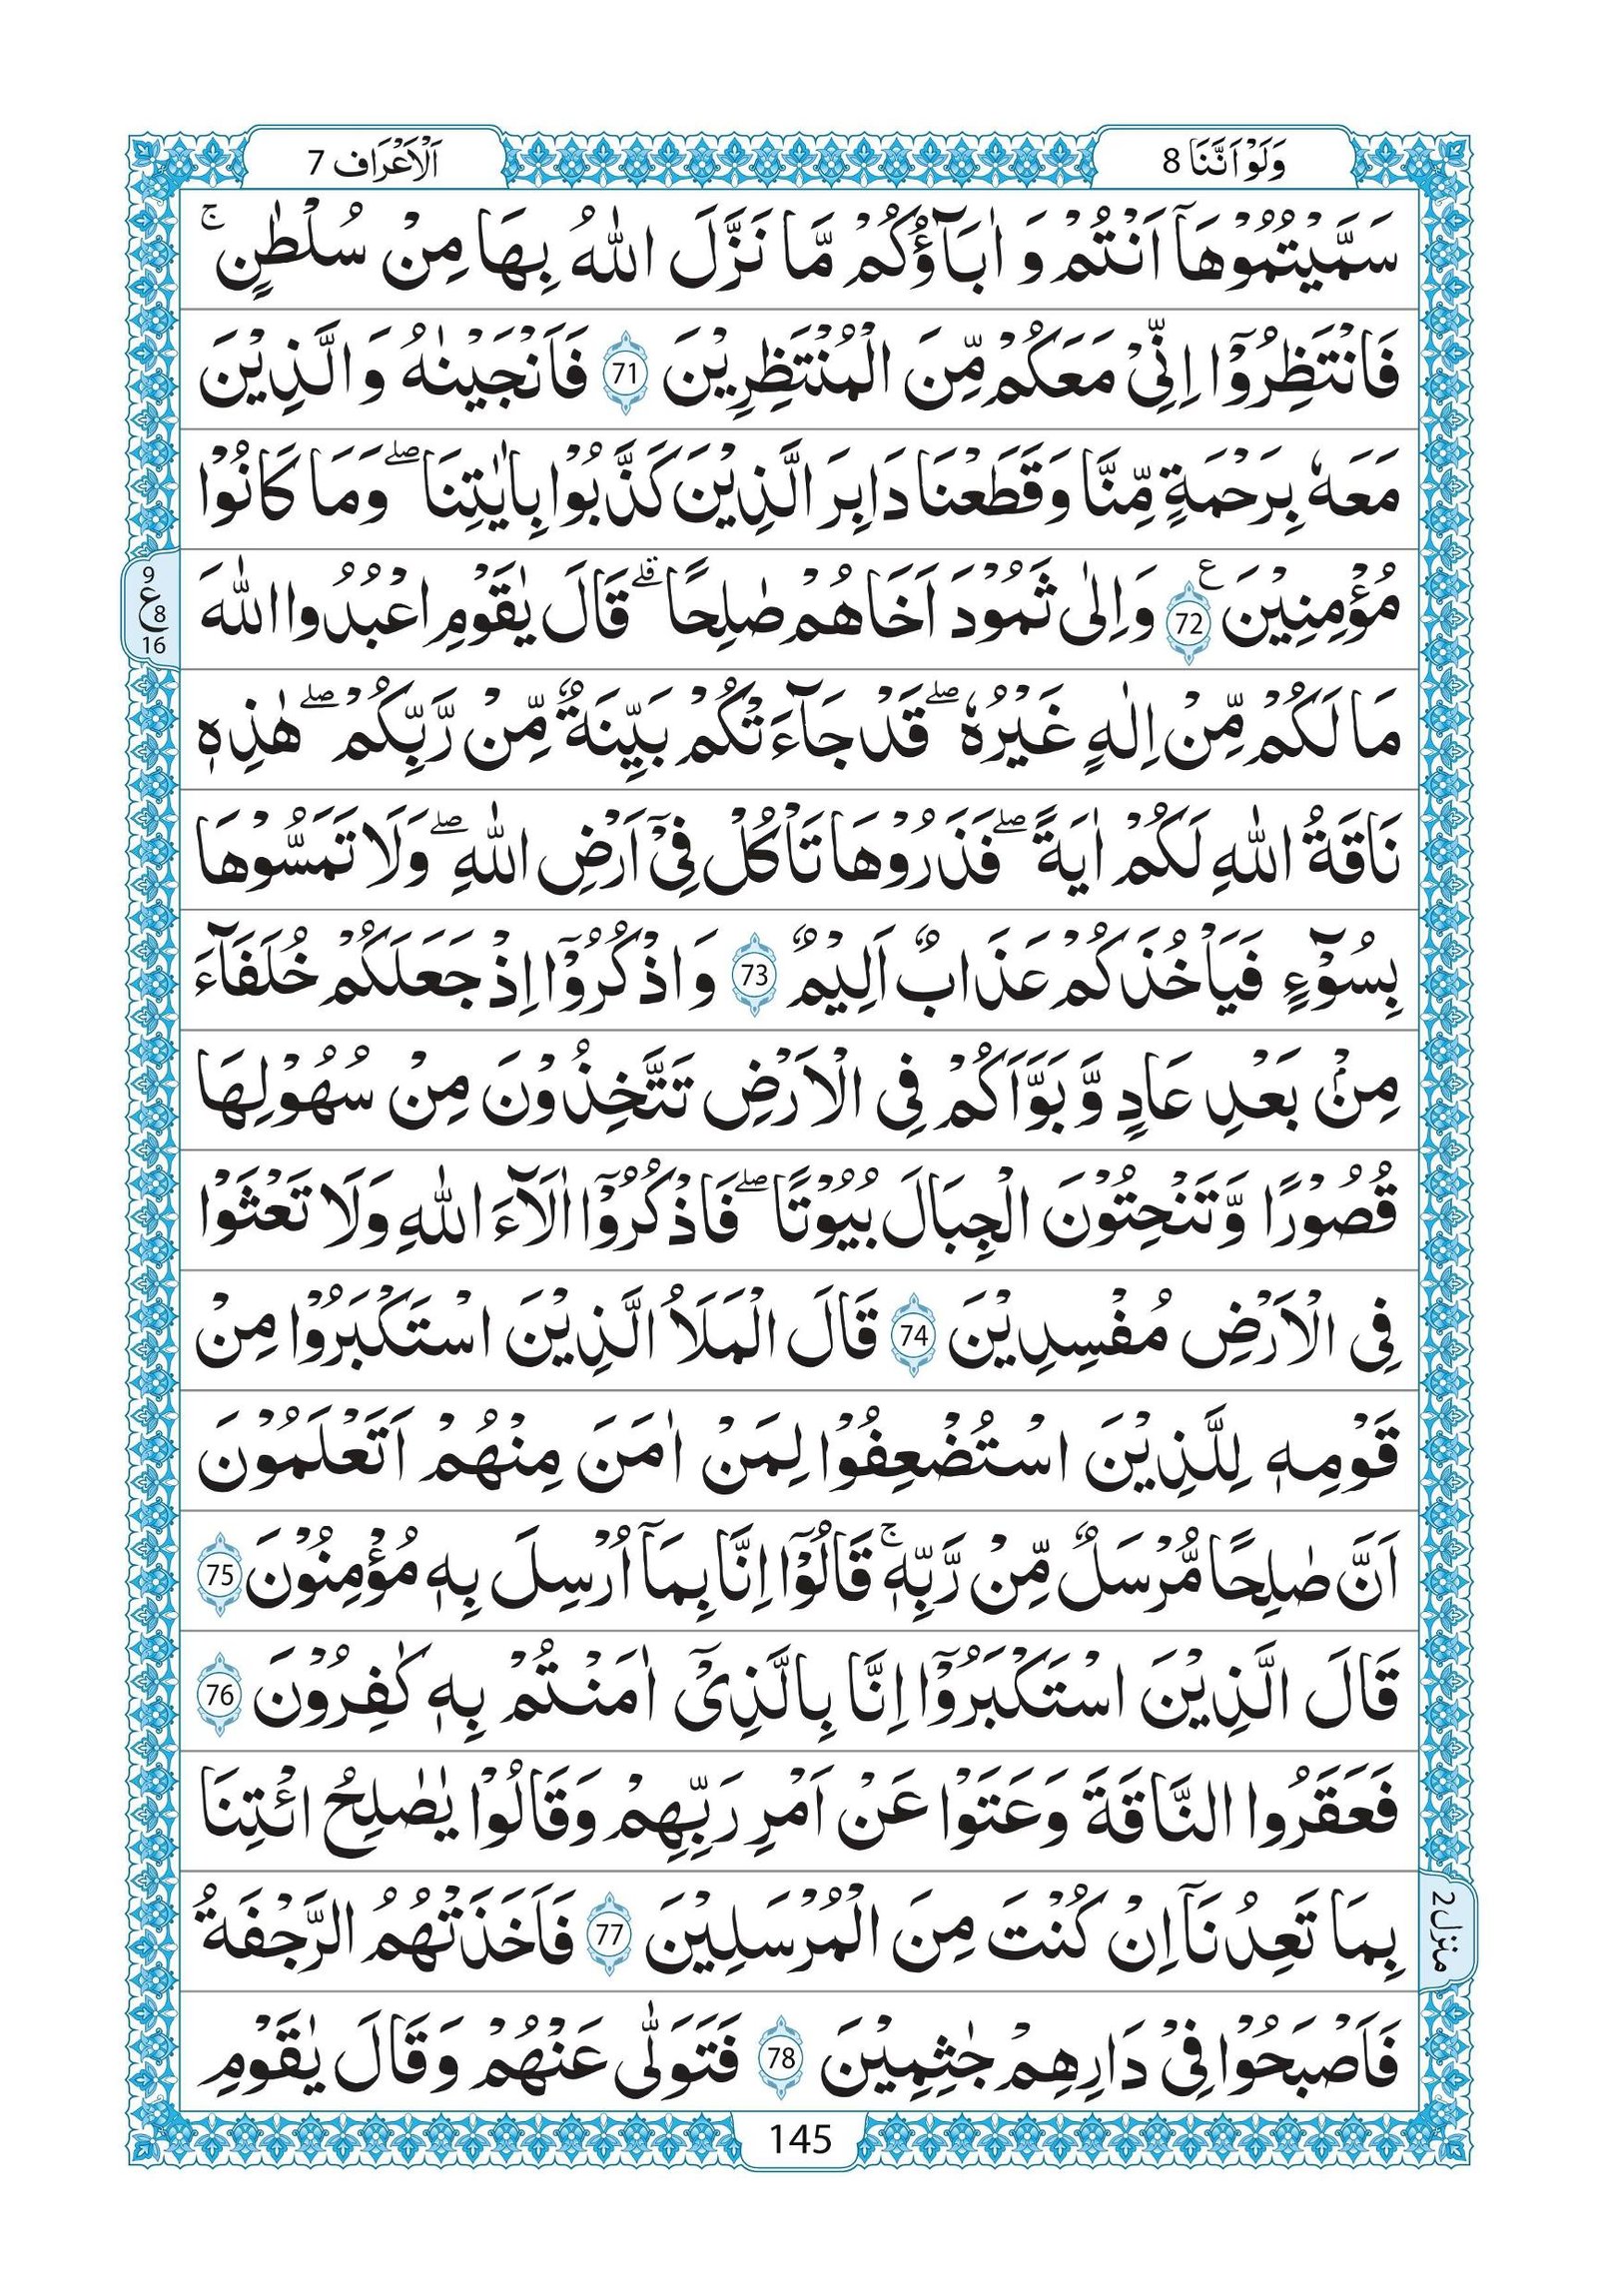 وَلَوْ اَنَّنَا 8
اَلْاَعْرَاف 7
سَمَّيْتُمُوْهَاۤ اَنْتُمْ وَ اٰبَآؤُكُمْ مَّا نَزَّلَ اللّٰهُ بِهَا مِنْ سُلْطٰنٍ ۚ
فَانْتَظِرُوْۤا اِنِّىْ مَعَكُمْ مِّنَ الْمُنْتَظِرِيْنَ 71 فَاَنْجَيْنٰهُ وَ الَّذِيْنَ
مَعَهٗ بِرَحْمَةٍ مِّنَّا وَقَطَعْنَا دَابِرَ الَّذِيْنَ كَذَّبُوْا بِاٰيٰتِنَا ۖ وَمَا كَانُوْا
مُؤْمِنِيْنَ ع 72 وَاِلٰى ثَمُوْدَ اَخَاهُمْ صٰلِحًا ۗ قَالَ يٰقَوْمِ اعْبُدُوا اللّٰهَ
9
ع 8
16
مَا لَكُمْ مِّنْ اِلٰهٍ غَيْرُهٗ ۖ قَدْ جَآءَتْكُمْ بَيِّنَةٌ مِّنْ رَّبِّكُمْ ۖ هٰذِهٖ
نَاقَةُ اللّٰهِ لَكُمْ اٰيَةً ۖ فَذَرُوْهَا تَاْكُلْ فِىْۤ اَرْضِ اللّٰهِ ۖ وَلَا تَمَسُّوْهَا
بِسُوْٓءٍ فَيَاْخُذَكُمْ عَذَابٌ اَلِيْمٌ 73 وَاذْكُرُوْۤا اِذْ جَعَلَكُمْ خُلَفَآءَ
مِنْۢ بَعْدِ عَادٍ وَّ بَوَّاَكُمْ فِى الْاَرْضِ تَتَّخِذُوْنَ مِنْ سُهُوْلِهَا
قُصُوْرًا وَّتَنْحِتُوْنَ الْجِبَالَ بُيُوْتًا ۖ فَاذْكُرُوْۤا اٰلَآءَ اللّٰهِ وَلَا تَعْثَوْا
فِى الْاَرْضِ مُفْسِدِيْنَ 74 قَالَ الْمَلَاُ الَّذِيْنَ اسْتَكْبَرُوْا مِنْ
قَوْمِهٖ لِلَّذِيْنَ اسْتُضْعِفُوْا لِمَنْ اٰمَنَ مِنْهُمْ اَتَعْلَمُوْنَ
اَنَّ صٰلِحًا مُّرْسَلٌ مِّنْ رَّبِّهٖ ۚ قَالُوْۤا اِنَّا بِمَاۤ اُرْسِلَ بِهٖ مُؤْمِنُوْنَ 75
قَالَ الَّذِيْنَ اسْتَكْبَرُوْۤا اِنَّا بِالَّذِىْۤ اٰمَنْتُمْ بِهٖ كٰفِرُوْنَ 76
فَعَقَرُوا النَّاقَةَ وَعَتَوْا عَنْ اَمْرِ رَبِّهِمْ وَقَالُوْا يٰصٰلِحُ ائْتِنَا
بِمَا تَعِدُنَاۤ اِنْ كُنْتَ مِنَ الْمُرْسَلِيْنَ 77 فَاَخَذَتْهُمُ الرَّجْفَةُ
منزل 2
فَاَصْبَحُوْا فِىْ دَارِهِمْ جٰثِمِيْنَ 78 فَتَوَلّٰى عَنْهُمْ وَقَالَ يٰقَوْمِ
145